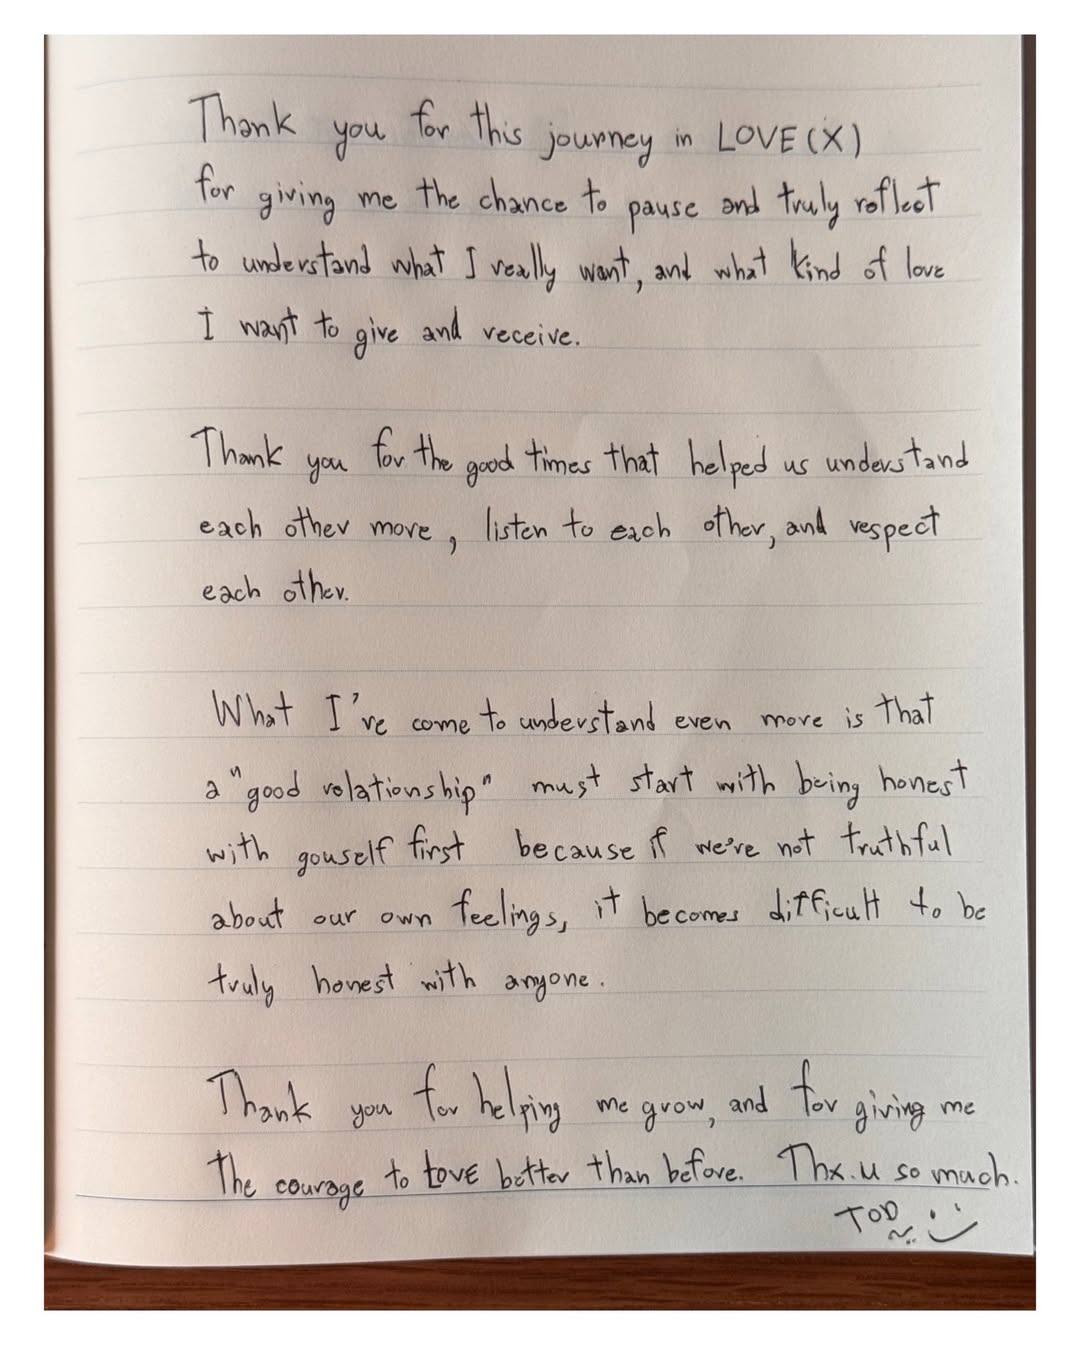 Thank you for this journey in LOVE (X)
for giving me the chance to pause and truly reflect
to understand what I really want, and what kind of love
I want to give and receive.
Thank you for the good times that helped us understand
each other more, listen to each other, and respect
each other.
What I've come to understand even more is that
a "good relationship" must start with being honest
with gouself first because if we're not truthful
about our own feelings, it becomes difficult to be
truly honest with anyone.
Thank you for helping me grow, and for giving me
the courage to LOVE better than before. Thx.u so much.
TOD